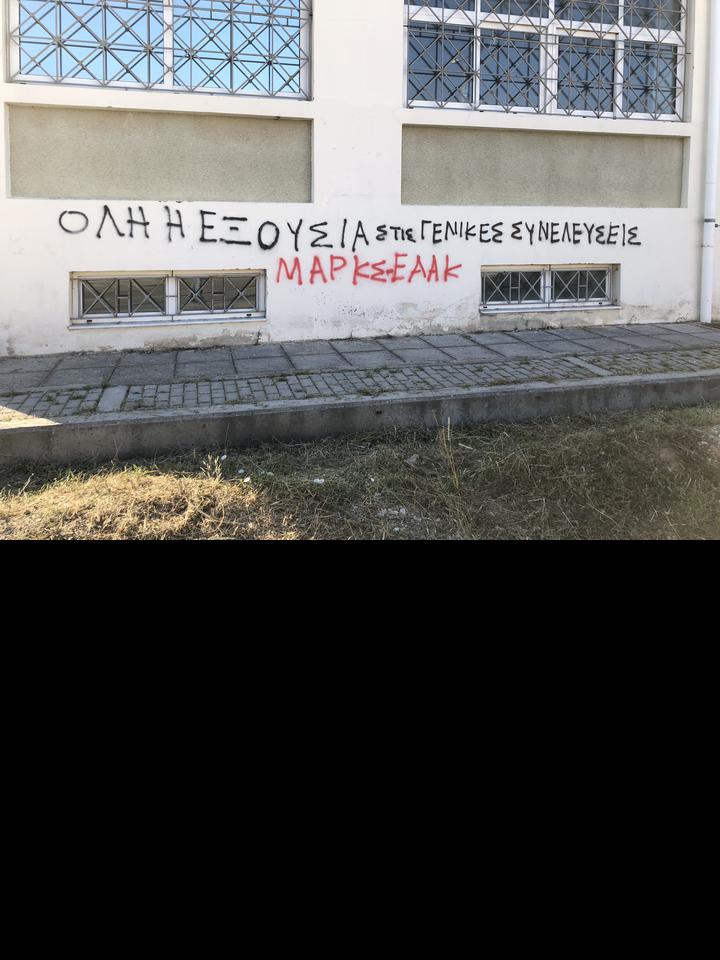 ΟΛΗ Η ΕΞΟΥΣΙΑ ΣΤΙΣ ΓΕΝΙΚΕΣ ΣΥΝΕΛΕΥΣΕΙΣ
ΜΑΡΚΣ-ΕΑΑΚ